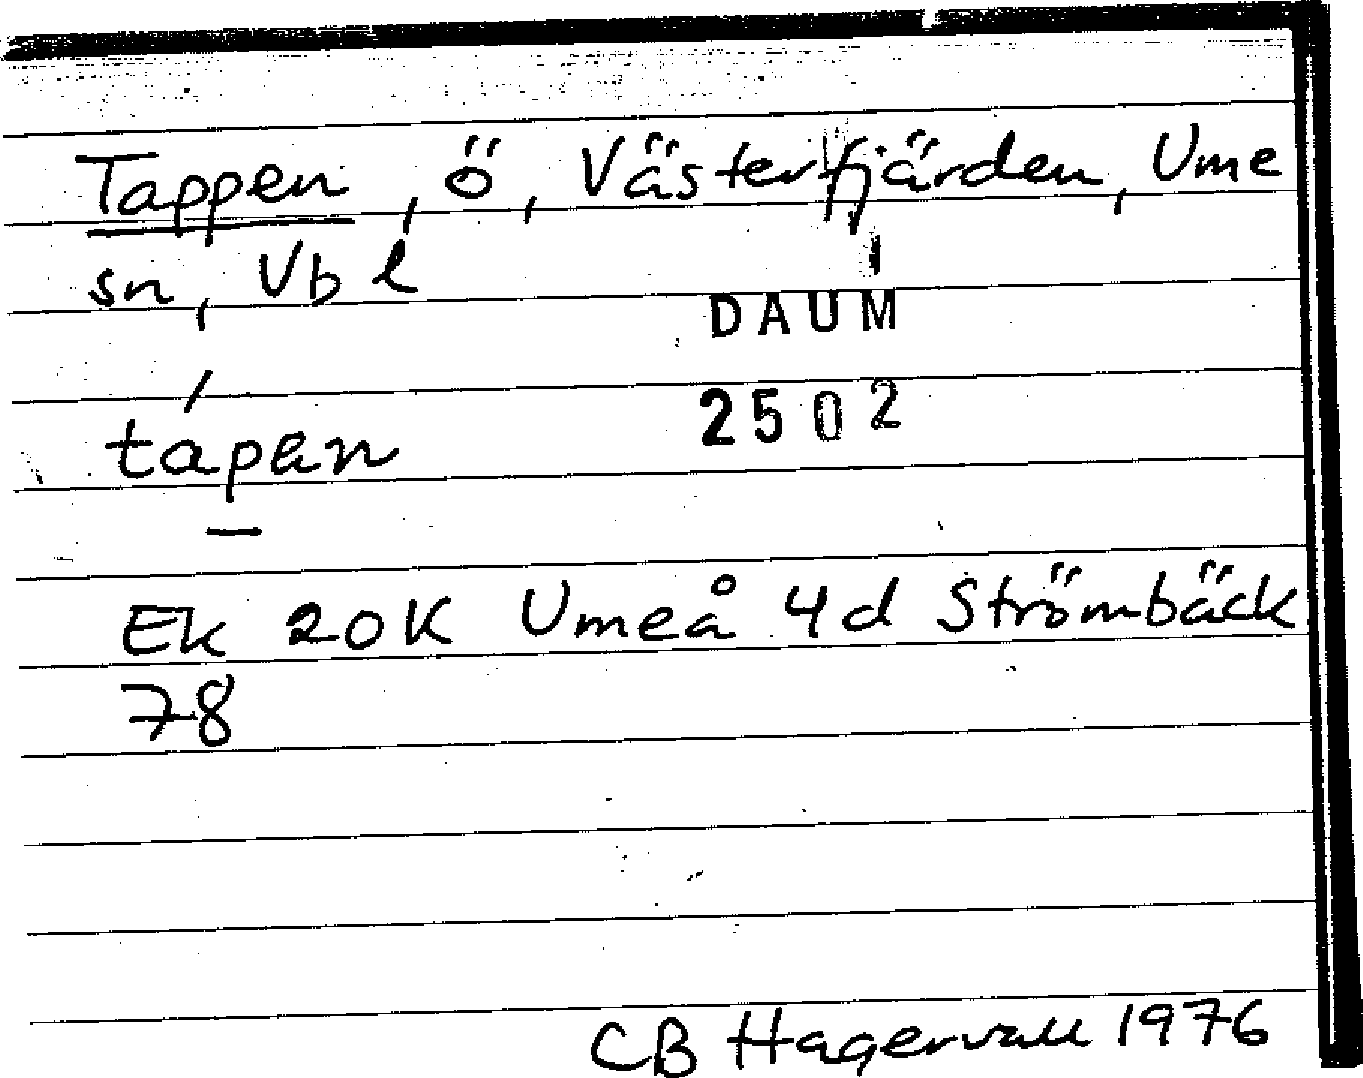 Tappen, ö, Västerfjärden, Ume
sn, Vb l
DAUM
2502
tapen
Ek 20K Umeå 4d Strömbäck
78
CB Hagervall 1976